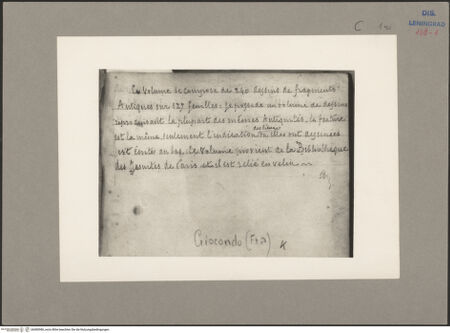 DIS.
LENINGRAD
C
Ce Volume se compose de 240 dessins de fragments
Antiques sur 127 feuilles = je possede un volume de dessins
representant la plupart des mêmes Antiquités, la facture
est la même, seulement l'indication des lieux où elles ont dessinées
est écrite au bas. Ce Volume provient de la Bibliothèque
des Jesuites de Paris et il est relié en velin
Giocondo (Fra)